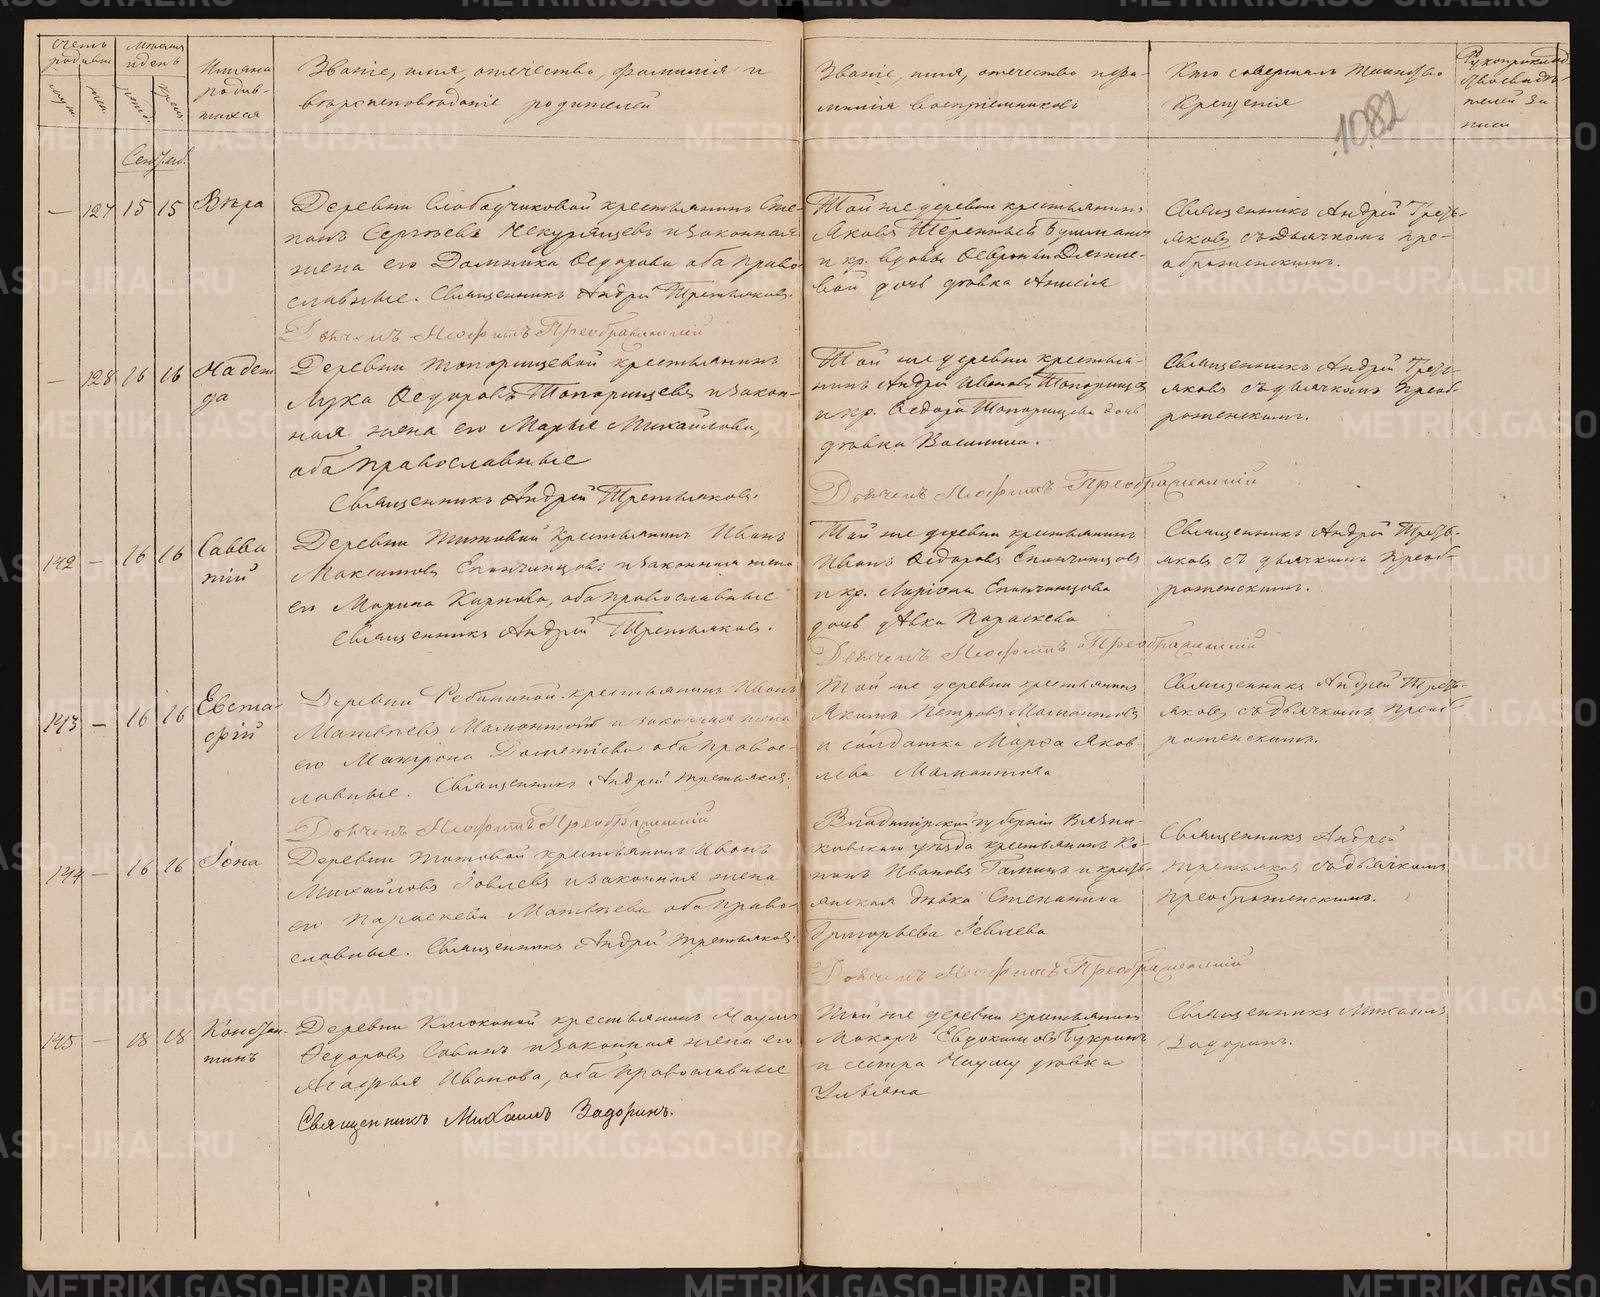 Счетъ родивш.
муж.
жен.
Мѣсяцъ и день
рожд.
крещ.
Имяна родив-
шихся
Званіе, имя, отечество, фамилія и
вѣроисповѣданіе родителей
Званіе, имя, отечество и фа-
милія воспріемниковъ
Кто совершалъ таинство
крещенія
Рукоприклад.
свидѣ-
телей за-
писи
1082
Сентяб.
— 127 15 15 Вѣра
Деревни Слободчиковой крестьянинъ Сте-
панъ Сергѣевъ Чекурящевъ и законная
жена его Домника Ѳедорова оба право-
славные. Священникъ Андрей Третьяковъ.
Дьячекъ Неофитъ Преображенскій
Той же деревни крестьянинъ
Яковъ Терентьевъ
и кр. вдовы Ѳевроніи
вой дочь дѣвка Анисія
Священникъ Андрей Треть-
яковъ съ дьячкомъ Пре-
ображенскимъ.
— 128 16 16 Надеж
да
Деревни Топорищевой крестьянинъ
Лука Ѳедоровъ Топорищевъ и закон-
ная жена его Марья Михайлова,
оба православные
Священникъ Андрей Третьяковъ.
Той же деревни крестья-
нинъ Андрей Ивановъ Топорищев
и кр. Ѳедора Топорищева дочь
дѣвка Василиса.
Дьячекъ Неофитъ Преображенскій
Священникъ Андрей Треть-
яковъ съ дьячкомъ Преоб-
раженскимъ.
142 — 16 16 Савва
тій
Деревни Титовой крестьянинъ Иванъ
Максимовъ Епанчинцовъ и законная жена
его Марина Карпова, оба православные
Священникъ Андрей Третьяковъ.
Той же деревни крестьянинъ
Иванъ Ѳедоровъ Епанчинцовъ
и кр. Ларіона Епанчинцова
дочь дѣвка Параскева
Дьячекъ Неофитъ Преображенскій
Священникъ Андрей Треть-
яковъ съ дьячкомъ Преоб-
раженскимъ.
143 — 16 16 Евста-
фій
Деревни Ребининой крестьянинъ Иванъ
Матвѣевъ Мамонтовъ и законная жена
его Матрона Дометіева оба правос-
лавные. Священникъ Андрей Третьяковъ.
Дьячекъ Неофитъ Преображенскій
Той же деревни крестьянинъ
Якимъ Петровъ Мамонтовъ
и солдатка Марѳа Яков-
лева Мамонтова
Священникъ Андрей Треть-
яковъ съ дьячкомъ Преоб-
раженскимъ.
144 — 16 16 Іона
Деревни Титовой крестьянинъ Иванъ
Михайловъ Іевлевъ и законная жена
его Параскева Матвѣева оба право-
славные. Священникъ Андрей Третьяковъ.
Владимірской губерніи Вязни-
ковскаго уѣзда крестьянинъ Ко-
нонъ Ивановъ и кресть-
янская дѣвка Степанида
Григорьева Іевлева
Дьячекъ Неофитъ Преображенскій
Священникъ Андрей
Третьяковъ съ дьячкомъ
Преображенскимъ.
145 — 18 18 Констан-
тинъ
Деревни Клюкиной крестьянинъ Наумъ
Ѳедоровъ Савинъ и законная жена его
Агафья Иванова, оба православные
Священникъ Михаилъ Задоринъ.
Той же деревни крестьянинъ
Макаръ Евдокимовъ Букринъ
и сестра Науму дѣвка
Ульяна
Священникъ Михаилъ
Задоринъ.
METRIKI.GASO-URAL.RU